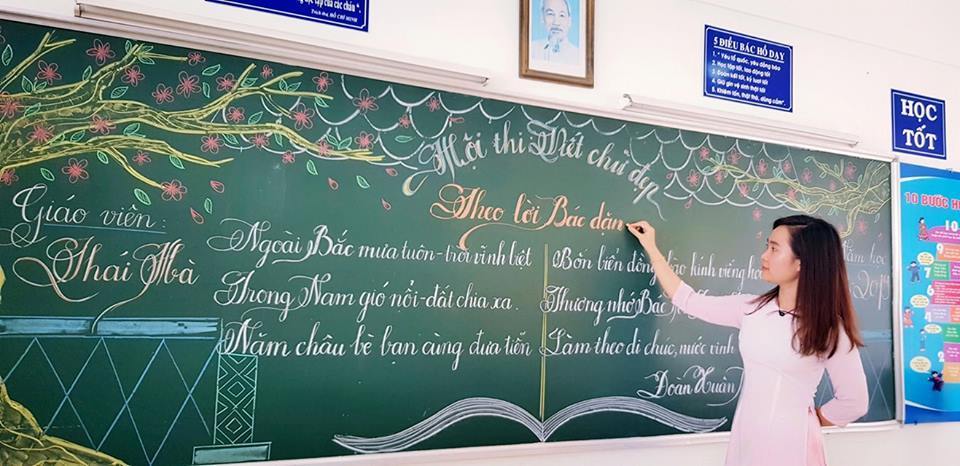 học tập của các cháu".
Trích thư, HỒ CHÍ MINH
5 ĐIỀU BÁC HỒ DẠY
1. "Yêu tổ quốc, yêu đồng bào
2. Học tập tốt, lao động tốt
3. Đoàn kết tốt, kỷ luật tốt
4. Giữ gìn vệ sinh thật tốt
5. Khiêm tốn, thật thà, dũng cảm".
HỌC
TỐT
10 BƯỚC
Hội thi Viết chữ đẹp
Theo lời Bác dặn
Giáo viên:
Thái Hà
Ngoài Bắc mưa tuôn - trời vĩnh biệt
Trong Nam gió nổi - đất chia xa.
Năm châu bè bạn cùng đưa tiễn
Bốn biển đồng bào kính viếng
Thương nhớ Bác
Làm theo di chúc, nước vinh
Đoàn Xuân
học